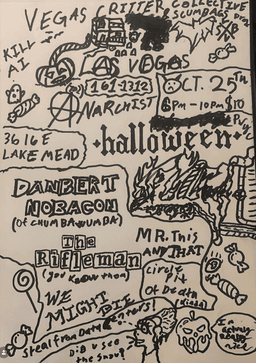 VEGAS CRITTER COLLECTIVE
SCUMBAGS
KILL AI
LAS VEGAS
161-1312
ANARCHIST
OCT. 25th
6PM - 10PM $10
3616 E
LAKE MEAD
halloween
DANBERT
NOBACON
(of CHUMBAWUMBA)
The
Rifleman
(you know them)
MR. This
AND THAT
circle
Pit
Of Death
(kinda)
WE
MIGHT DIE
steal from Data Centers!
Did u see
the snow?